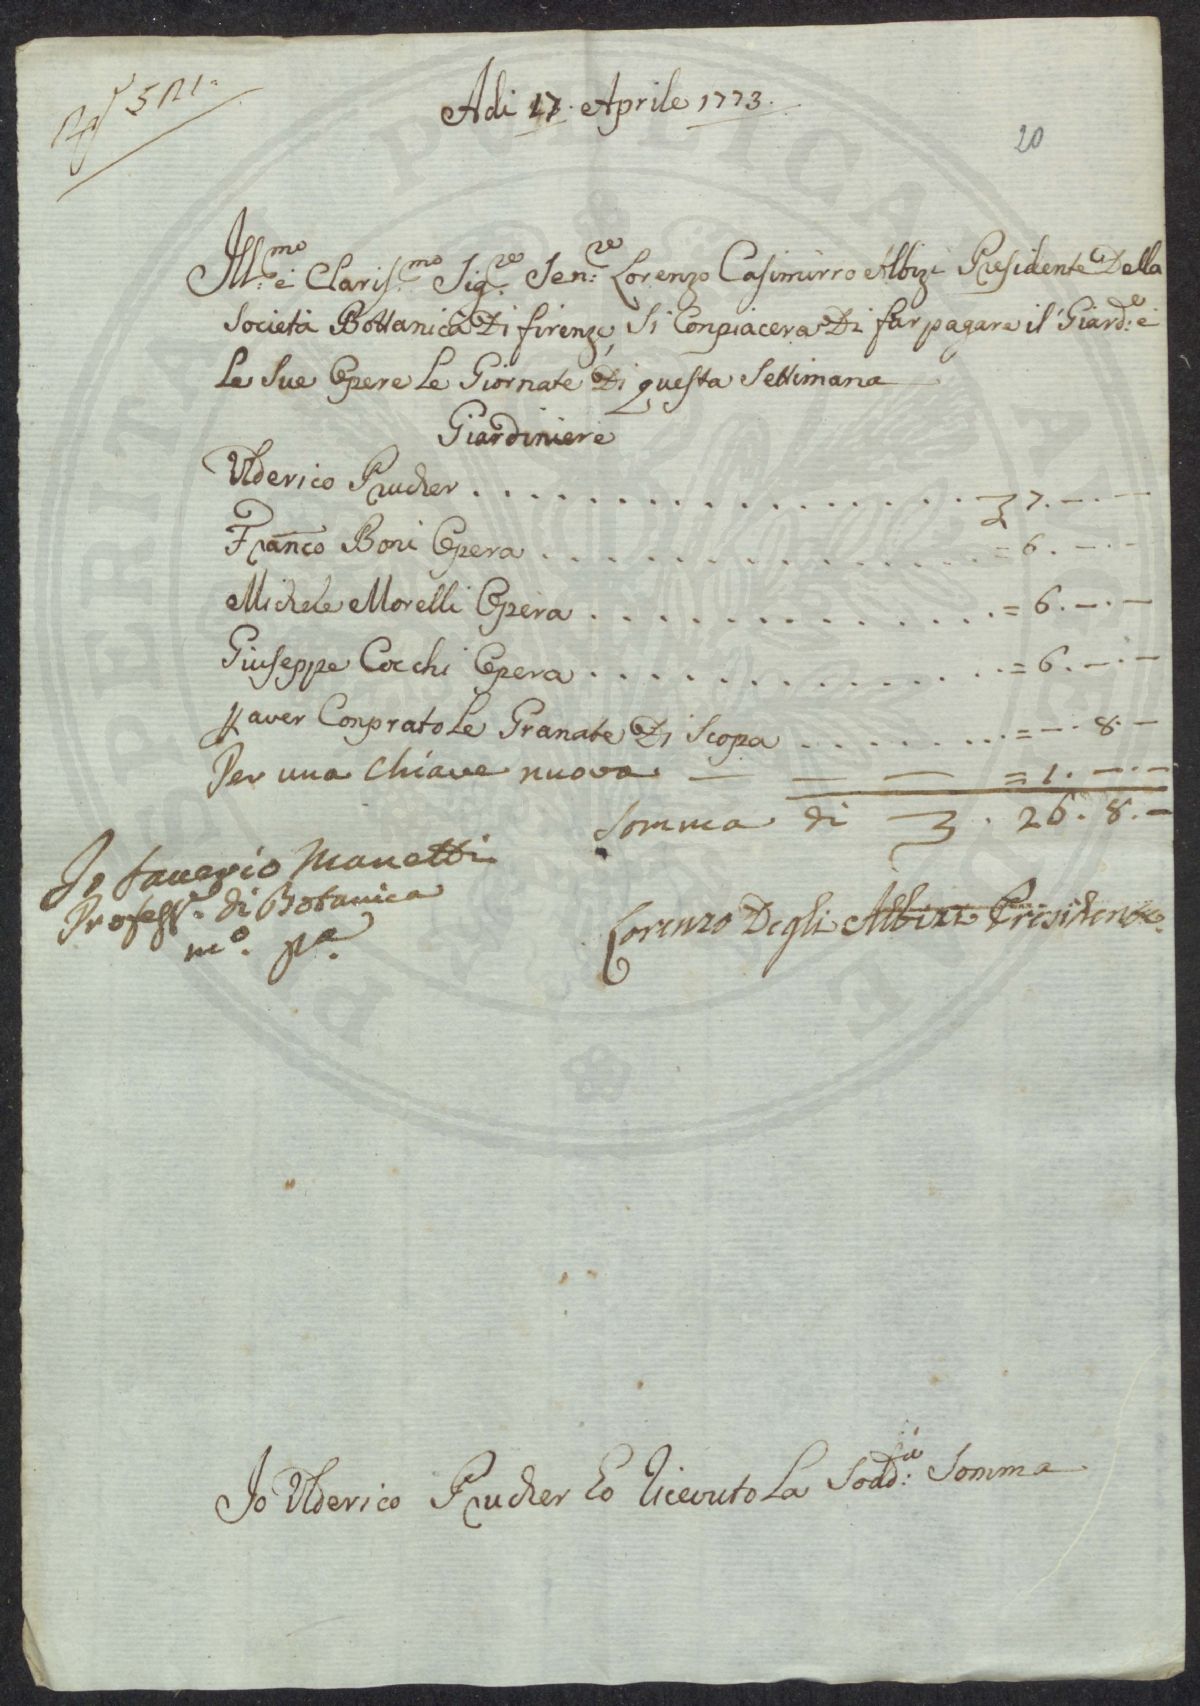 Adi 17. Aprile 1773.
20
Ill.mo e Claris.mo Sig.re Sen.re Lorenzo Casimirro Albizi Presidente Della
Società Bottanica Di firenze, Si Conpiacera Di far pagare il Giard.e e
Le Sue Opere Le Giornate Di questa Settimana
Giardiniere
Ulderico Prucher . . . . . . . . . . . . . . . . 7. — . —
Fran.co Boni Opera . . . . . . . . . . . . . . = 6. — . —
Michele Morelli Opera . . . . . . . . . . . . . = 6. — . —
Giuseppe Cocchi Opera . . . . . . . . . . . . . = 6. — . —
aver Conprato Le Granate Di Scopa . . . . . . . = — . 8. —
Per una Chiave nuova — — — = 1. — . —
Somma di — . 26. 8. —
Io Saverio Manetti
Profess.e di Botanica
m.o p.a
Lorenzo Degli Albizi Presidente.
Io Ulderico Prucher Eo Ricevuto La Sodd: Somma